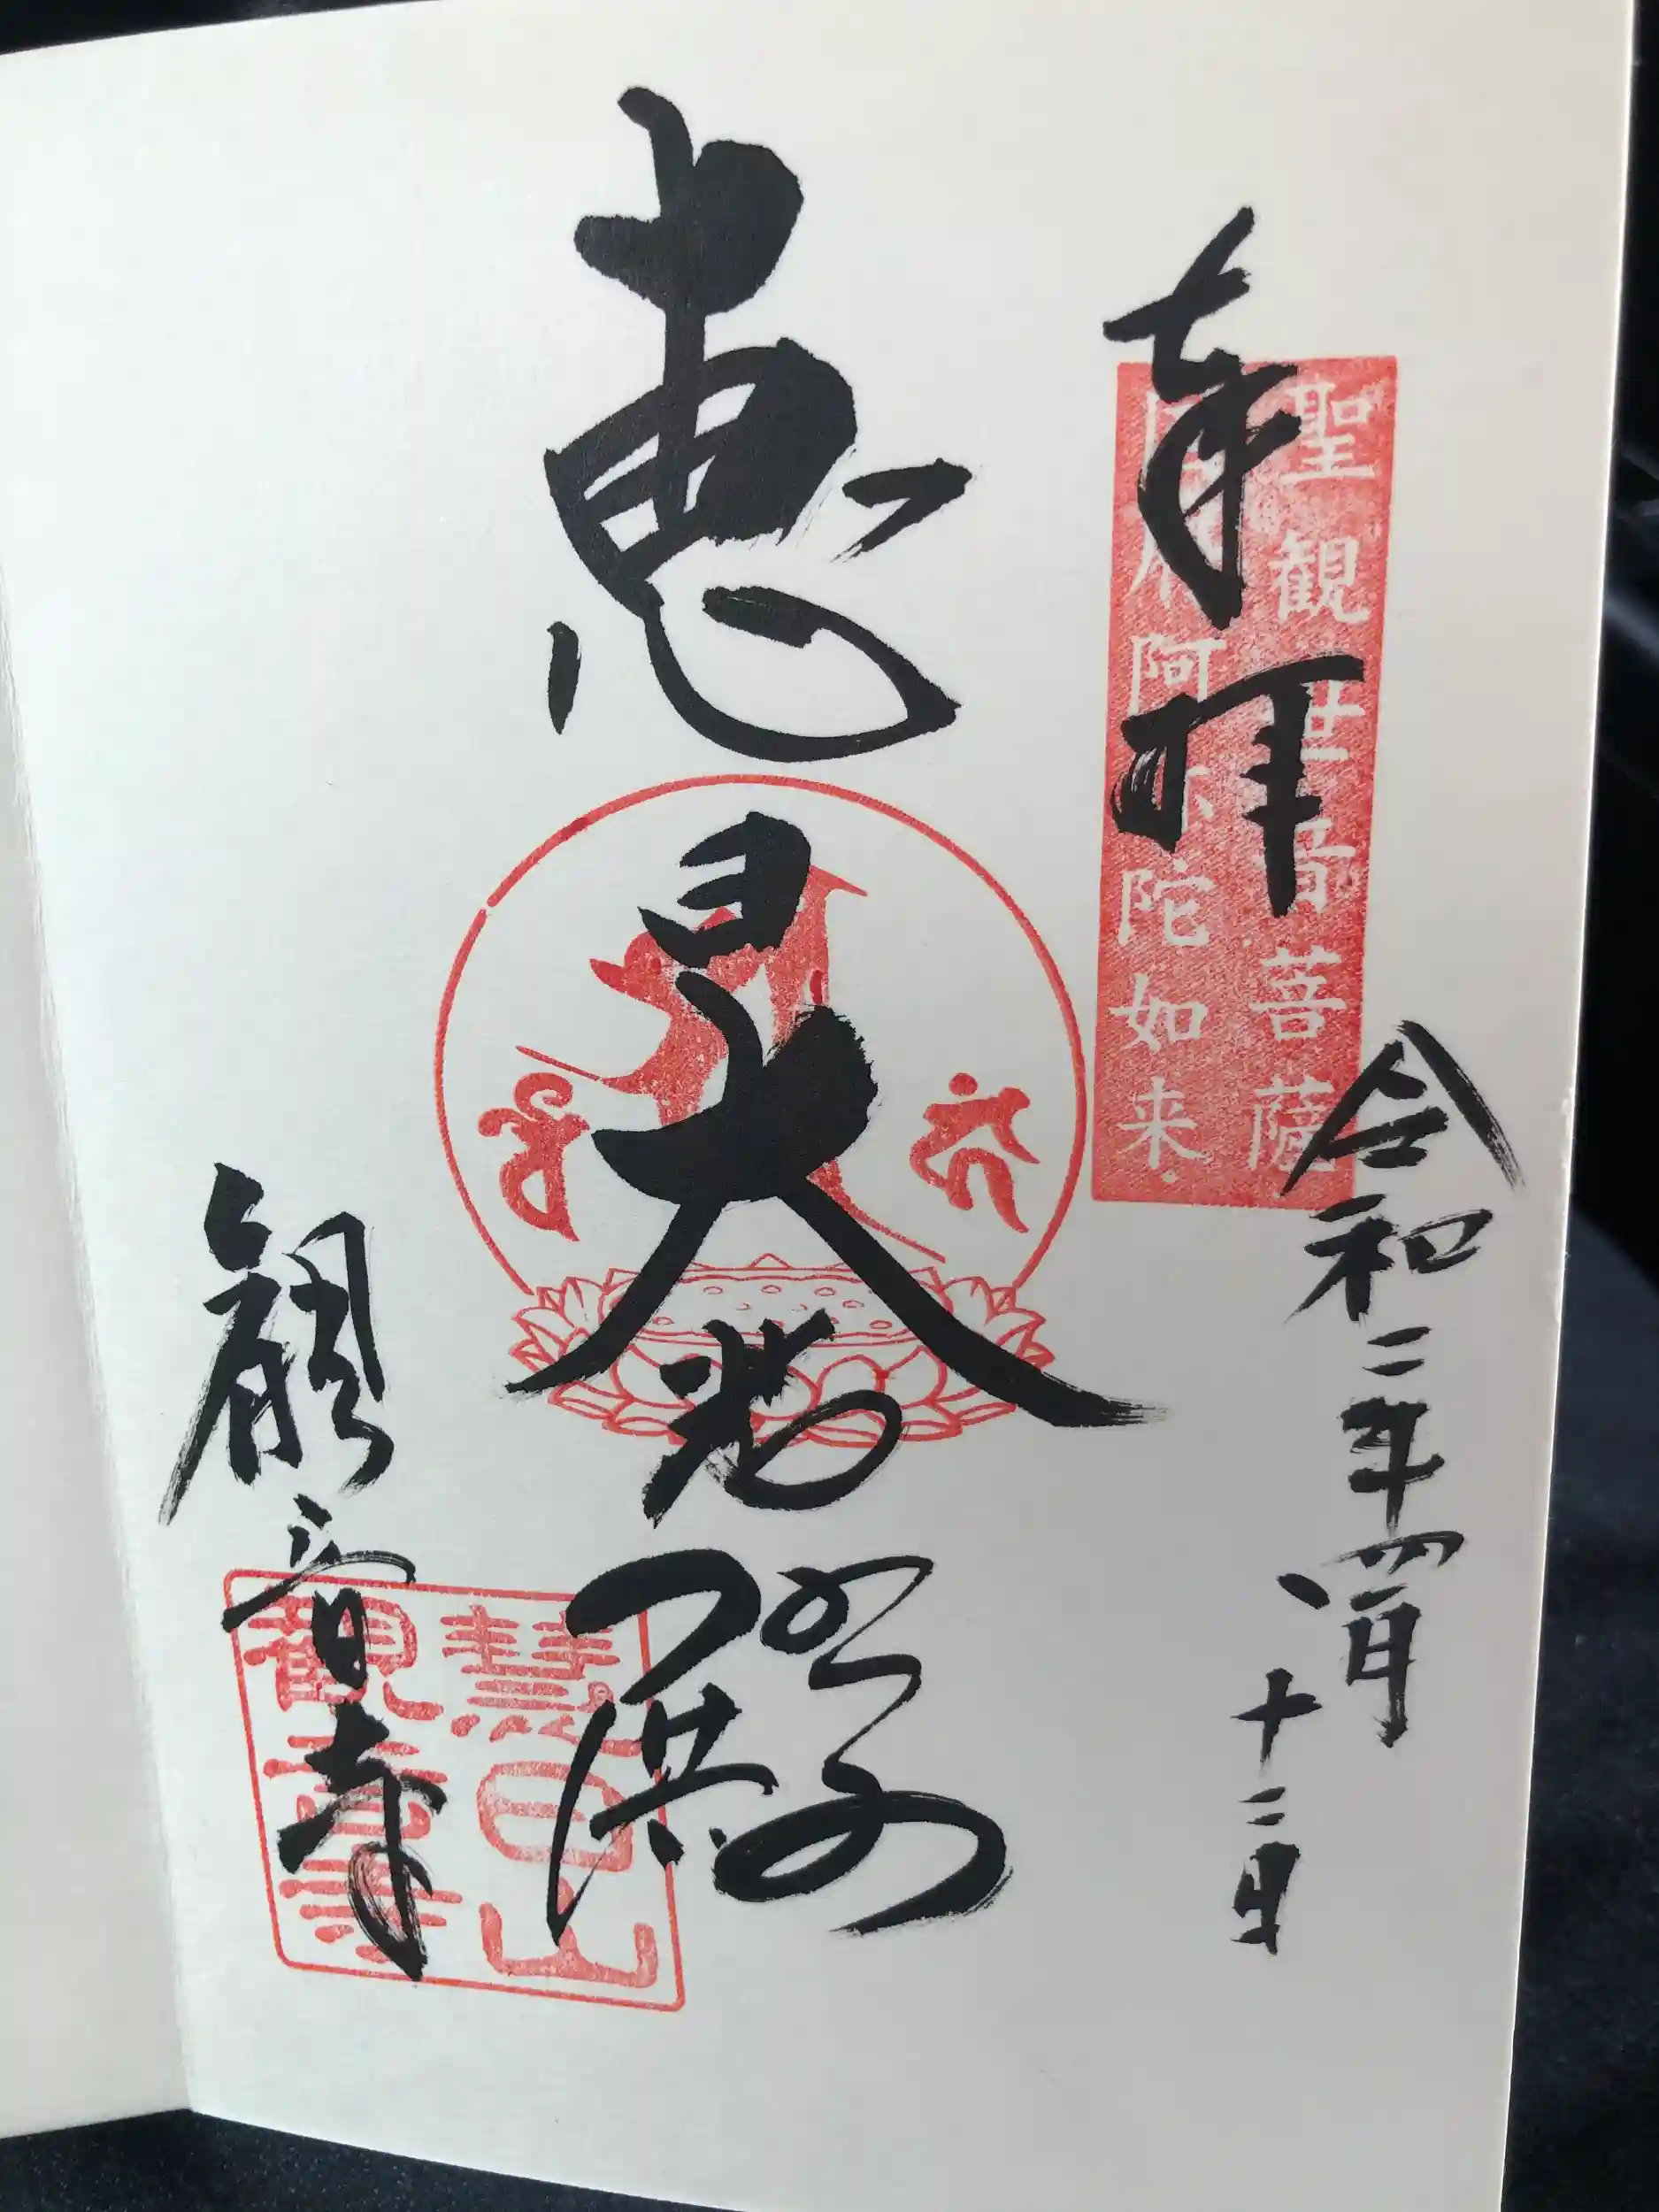 奉拝
聖観世音菩薩
阿弥陀如来
令和二年四月
十二日
恵日大悲殿
観音寺
慧日山
観音寺